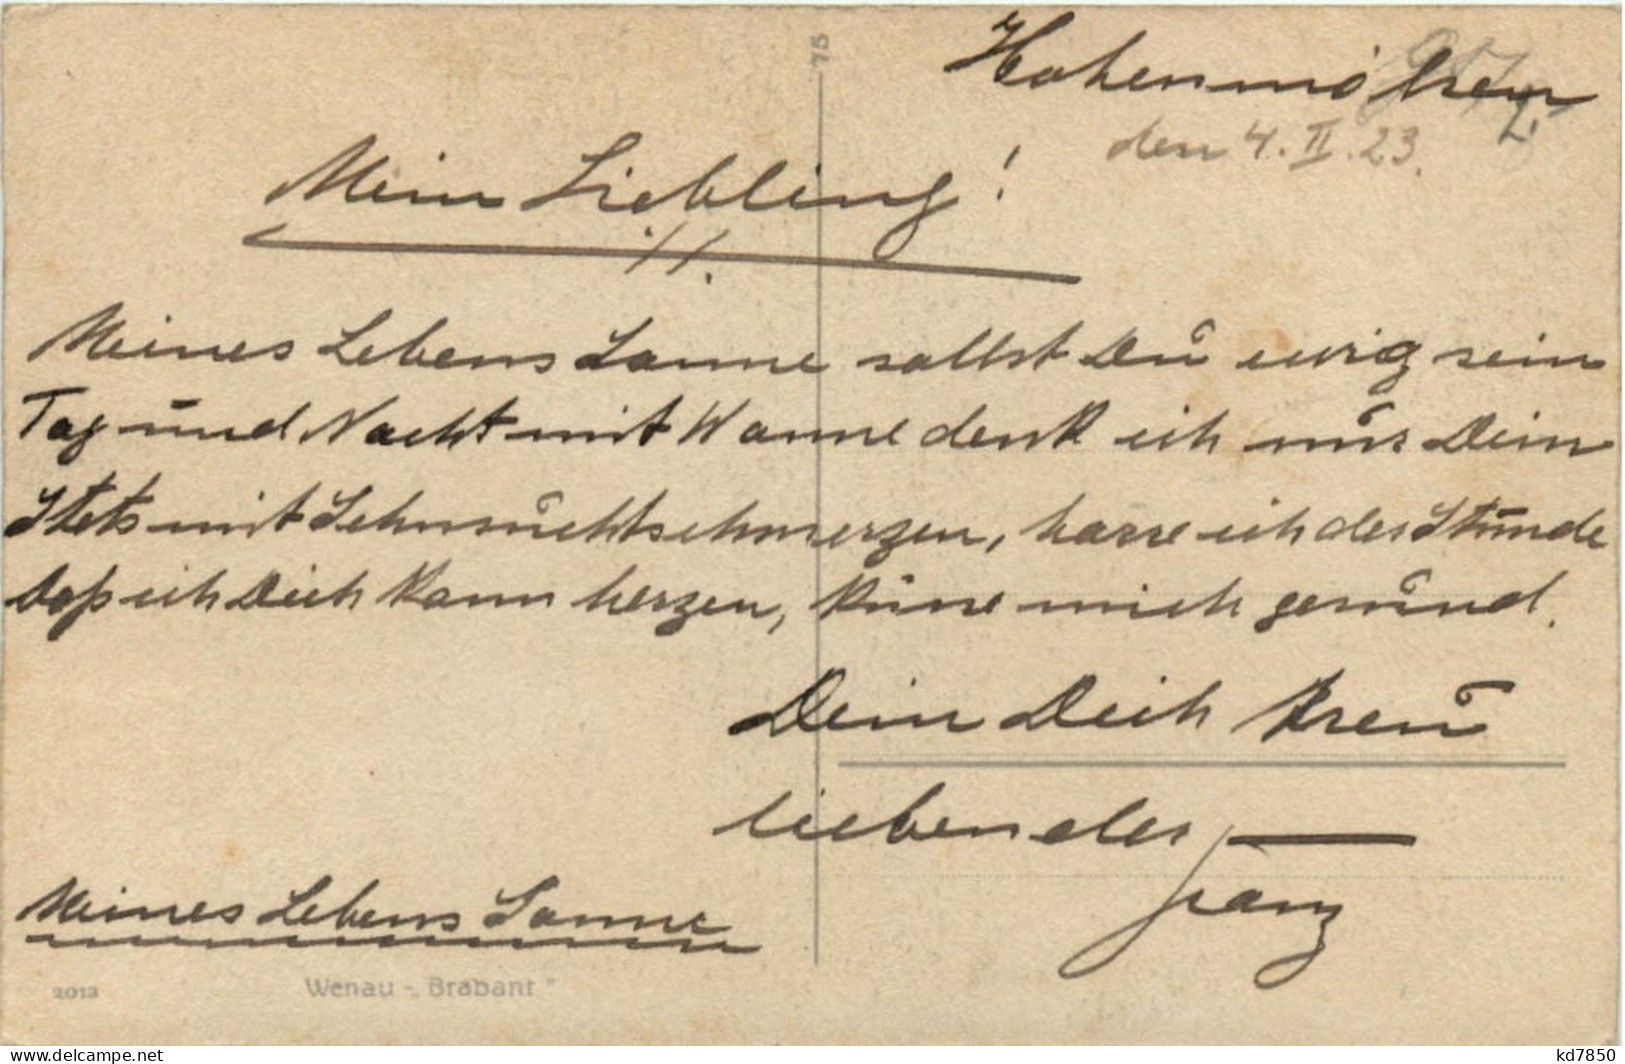 75
Hohenmölsen
den 4. II. 23.
Mein Liebling!
Meines Lebens Sonne sollst Du ewig sein
Tag und Nacht mit Wonne denk ich nur Dein
Stets mit Sehnsuchtschmerzen, harre ich der Stunde
Daß ich Dich kann herzen, küsse mich gesund.
Dein Dich treu
liebender
Franz
Meines Lebens Sonne
2013
Wenau - „Brabant"
kd7850